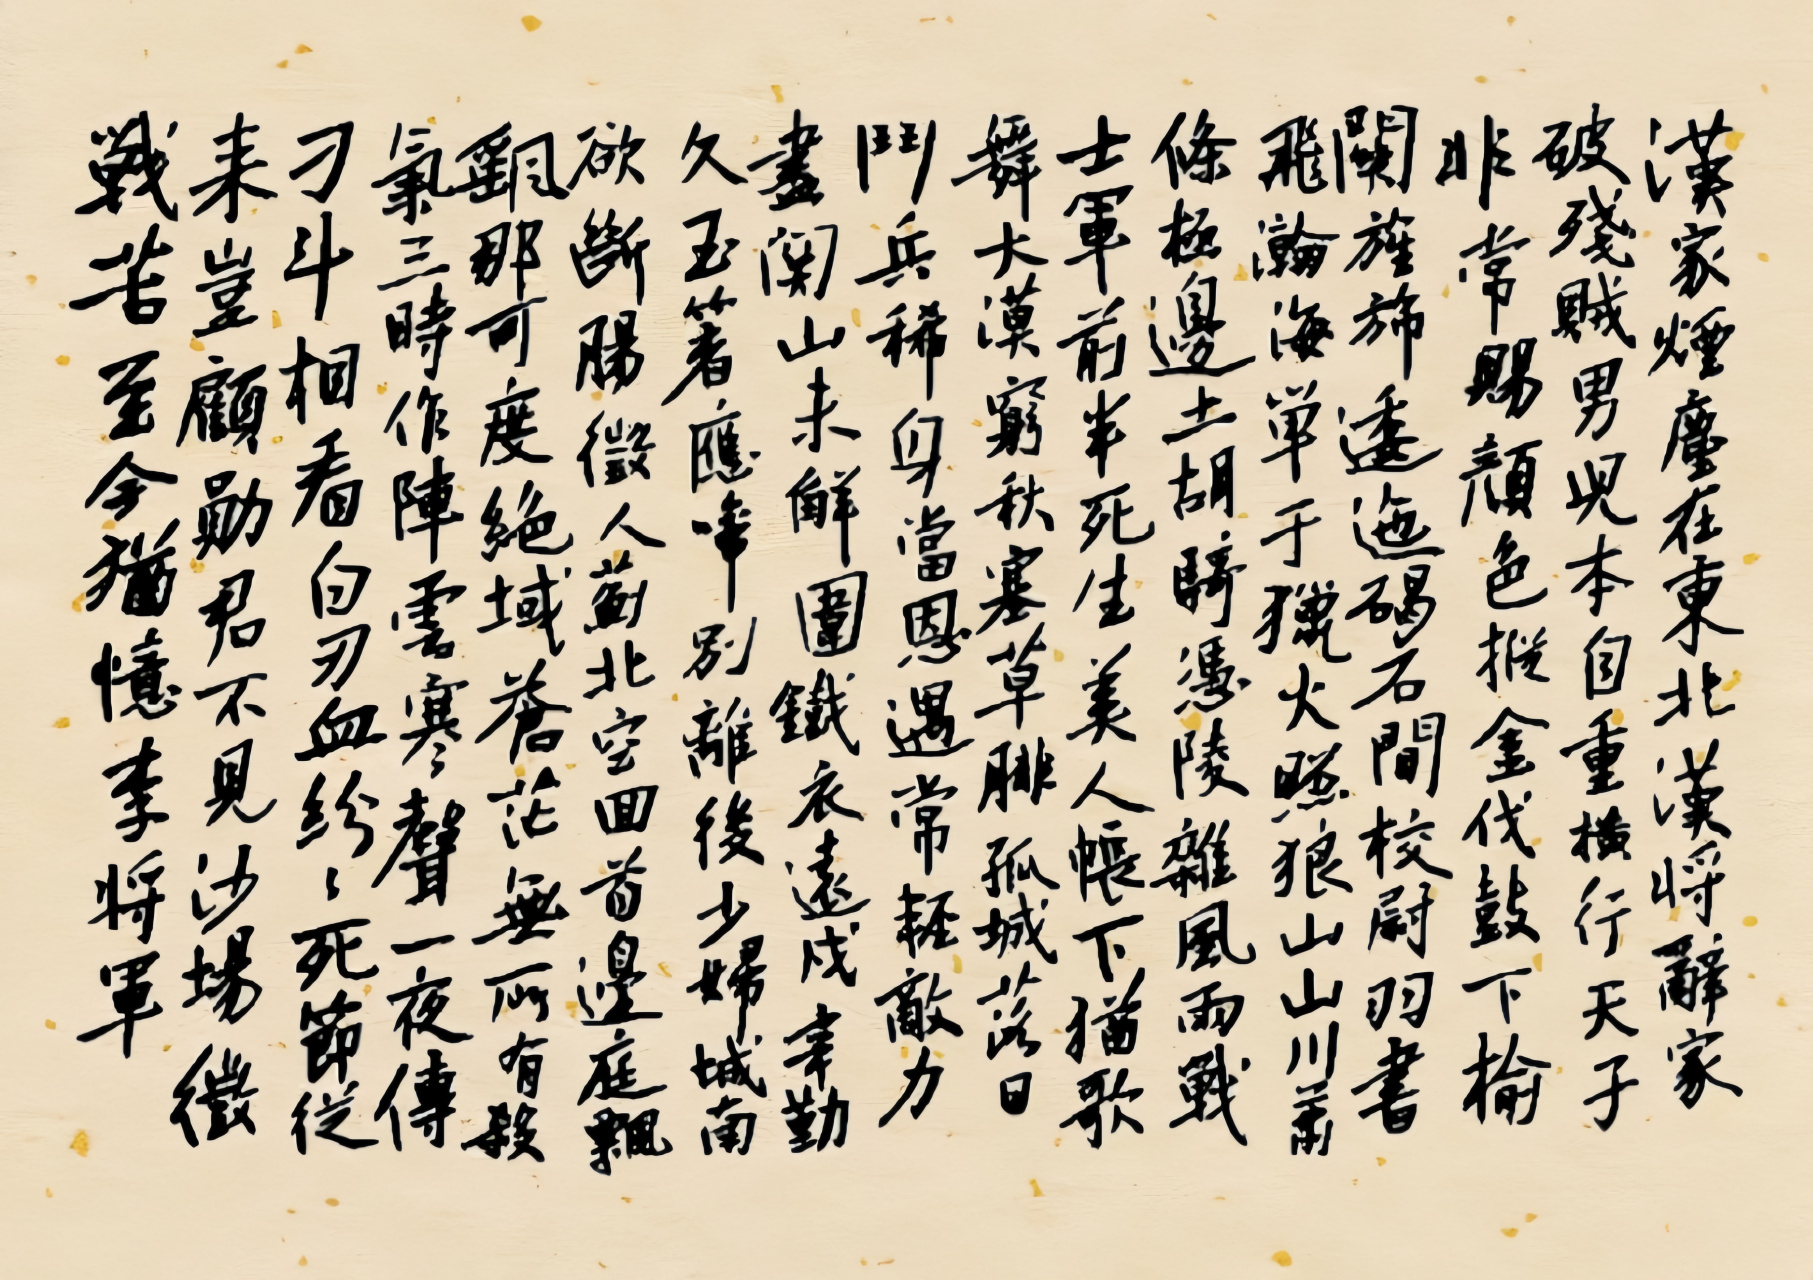 漢家煙塵在東北漢将辭家
破殘賊男兒本自重橫行天子
非常賜顏色摐金伐鼓下榆
關旌旆逶迤碣石間校尉羽書
飛瀚海単于獵火照狼山山川蕭
條極邊土胡騎憑陵雜風雨戦
士軍前半死生美人帳下猶歌
舞大漠窮秋塞草腓孤城落日
鬥兵稀身當恩遇常輕敵力
盡関山未解圍鐵衣遠戍辛勤
久玉箸應啼別離後少婦城南
欲斷腸徵人薊北空回首邊庭飄
颻那可度絕域蒼茫無所有殺
氣三時作陣雲寒聲一夜傳
刁斗相看白刃血紛々死節從
来豈顧勛君不見沙場徵
戦苦至今猶憶李将軍